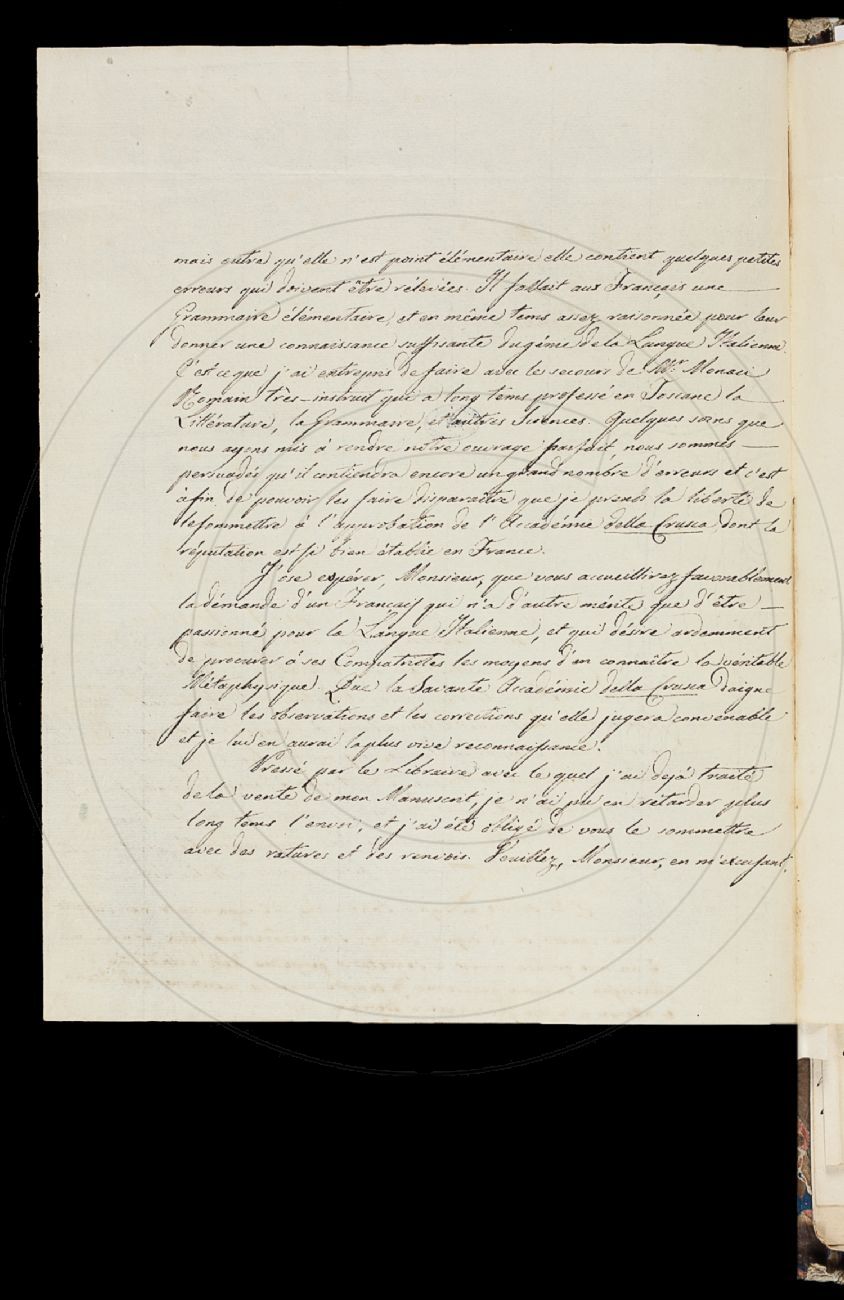 mais outre qu'elle n'est point élémentaire elle contient quelques petites
erreurs qui doivent être rélevées. Il fallait aux Français une
Grammaire élémentaire, et en même tems assez raisonnée pour leur
donner une connaissance suffisante du génie de la Langue Italienne.
C'est ce que j'ai entrepris de faire avec le secours de Mr. Monaci
Romain très-instruit qui a long tems professé en Toscane la
Littérature, la Grammaire, et autres Sciences. Quelques soins que
nous ayons mis à rendre notre ouvrage parfait, nous sommes
persuadés qu'il contiendra encore un grand nombre d'erreurs et c'est
àfin de pouvoir les faire disparaître que je prends la liberté de
le sommettre à l'approbation de l'Académie della Crusca dont la
réputation est si bien établie en France.
J'ose espérer, Monsieur, que vous accueillirez favorablement
la démande d'un Français qui n'a d'autre mérite que d'être
passionné pour la Langue Italienne, et qui désire ardemment
de procurer à ses Compatriotes les moyens d'en connaître la véritable
Métaphysique. Que la Savante Académie della Crusca daigne
faire les observations et les corrections qu'elle jugera convenable
et je lui en aurai la plus vive reconnaissance.
Pressé par le Libraire avec le quel j'ai dejà traité
de la vente de mon Manuscrit, je n'ai pu en rétarder plus
long tems l'envoi, et j'ai été obligé de vous le sommettre
avec des ratures et des renvois. Veuillez, Monsieur, en m'excusant,